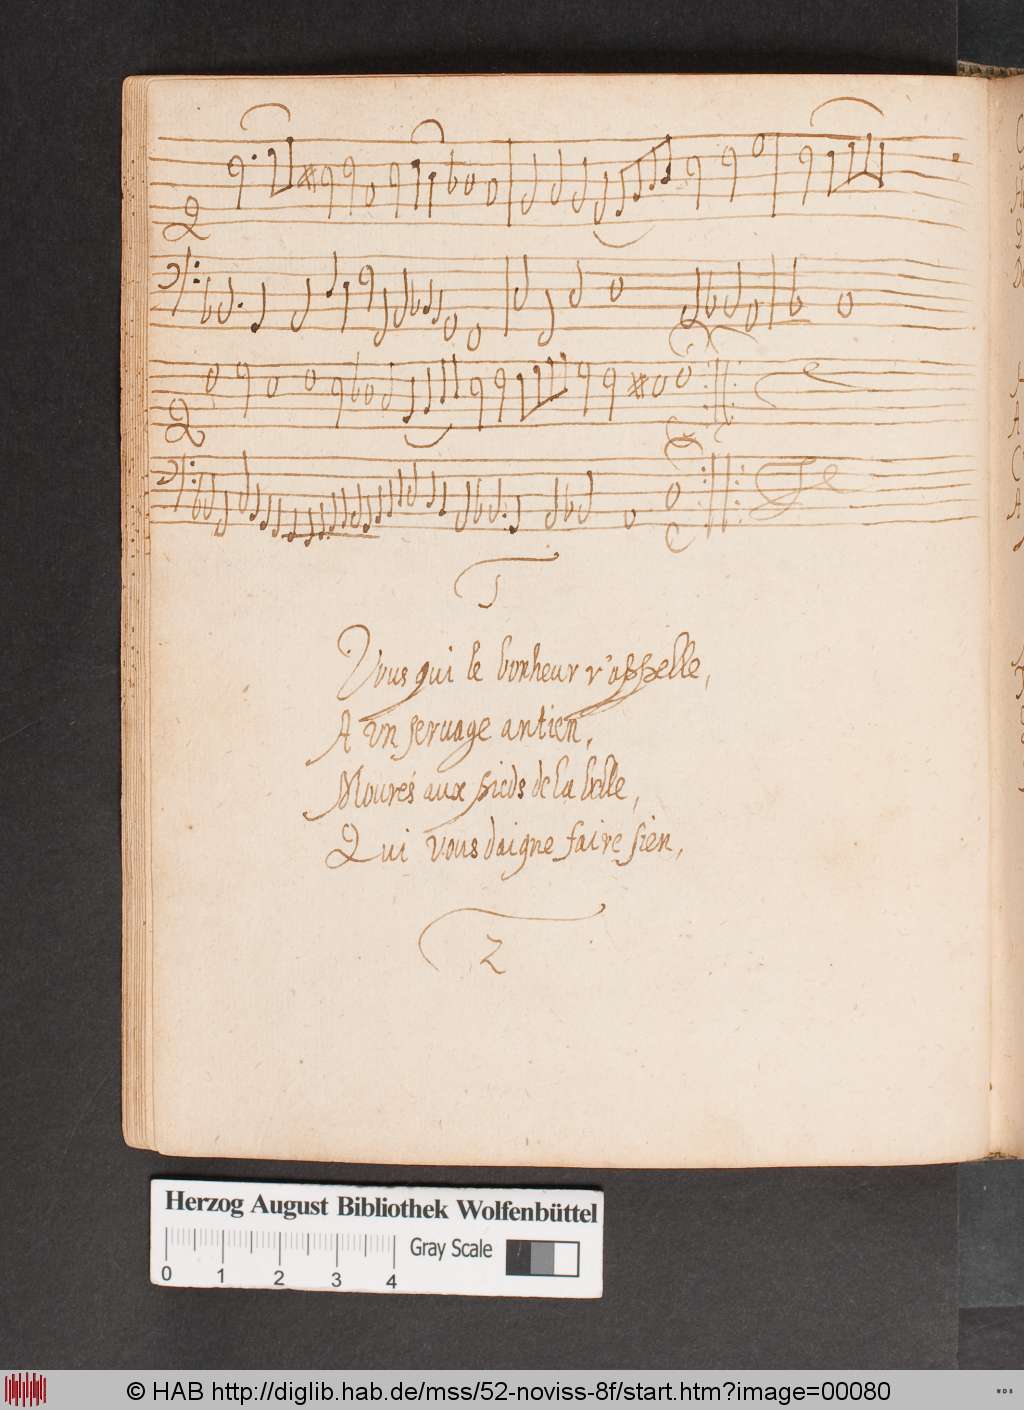 Vous qui le bonheur r'appelle,
A vn seruage antien,
Mourés aux pieds de la belle,
Qui vous daigne faire sien,
2
Herzog August Bibliothek Wolfenbüttel
Gray Scale
0 1 2 3 4
© HAB http://diglib.hab.de/mss/52-noviss-8f/start.htm?image=00080